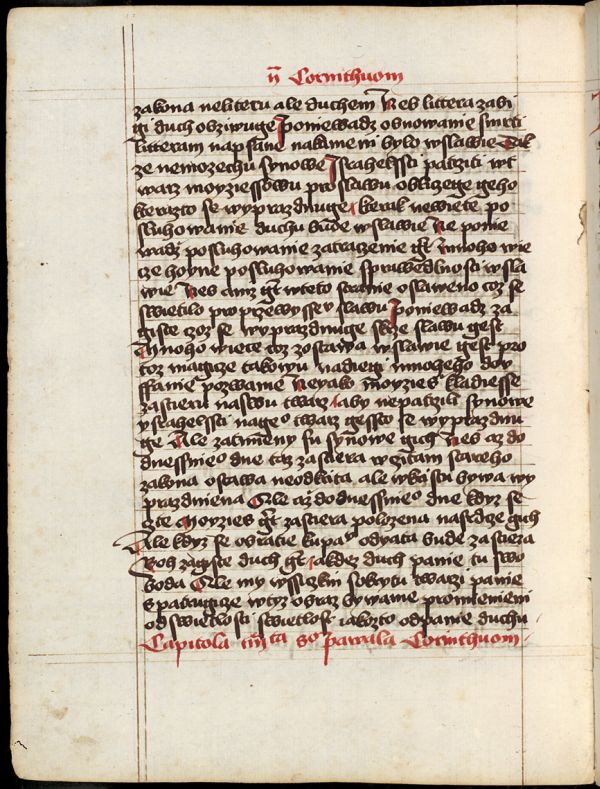 ij Corinthuom
zakona neliteru ale duchem Nebs littera zabi
gi duch obziwuge Poniewadz obnowanie smrti
litteram napsane nakameni bylo wslawie Tak
ze nemozechu synowe Israhelssci patrziti wt
warz moyziessowu pro slawu obliczege geho
kterazto se wyprazdniuge kterak newiete po
sluhowanie duchu bude wslawie Nebo ponie
wadz posluhowanie zatraczenie gt mnoho wie
cze hoyne posluhowanie sprawedlnosti wsla
wie Nebs aniz gt wteto stranie oslaweno coz se
swietilo pro przewyssessi slawu Poniewadz za
giste czoz se wyprazdniuge skrze slawu gest
Mnoho wiece coz zostawa wslawie gest pro
toz magicze takowu nadiegi mnoheho dou
ffanie pozwame Neyako moyzies kladiesse
zastieru naswu twarz aby nepatrzili synowe
ysrahelssci nageo twarz gessto se wyprazdniu
ge Ale zatmieny su synowe gich Nebs az do
dnessnieo dne taz zastiera wcztani stareho
zakona ostawa neodkrita ale wkristu bywa wy
prazdniena Ale az do dnessnieo dne kdyz se
czte Moyzies gt zastiera polozena nasrdcze gich
Ale kdyz se obratie kupanu odyata bude zastiera
Boh zagiste duch gt a kdez duch panie tu swo
boda Ale my wssiczkni sokrytu twarzi panie
spatrugicze wtyz obraz bywame promienieni
odswietlosti swietlost iakozto odpanie duchu
Capitola iiijta sgo pawala Corinthuom